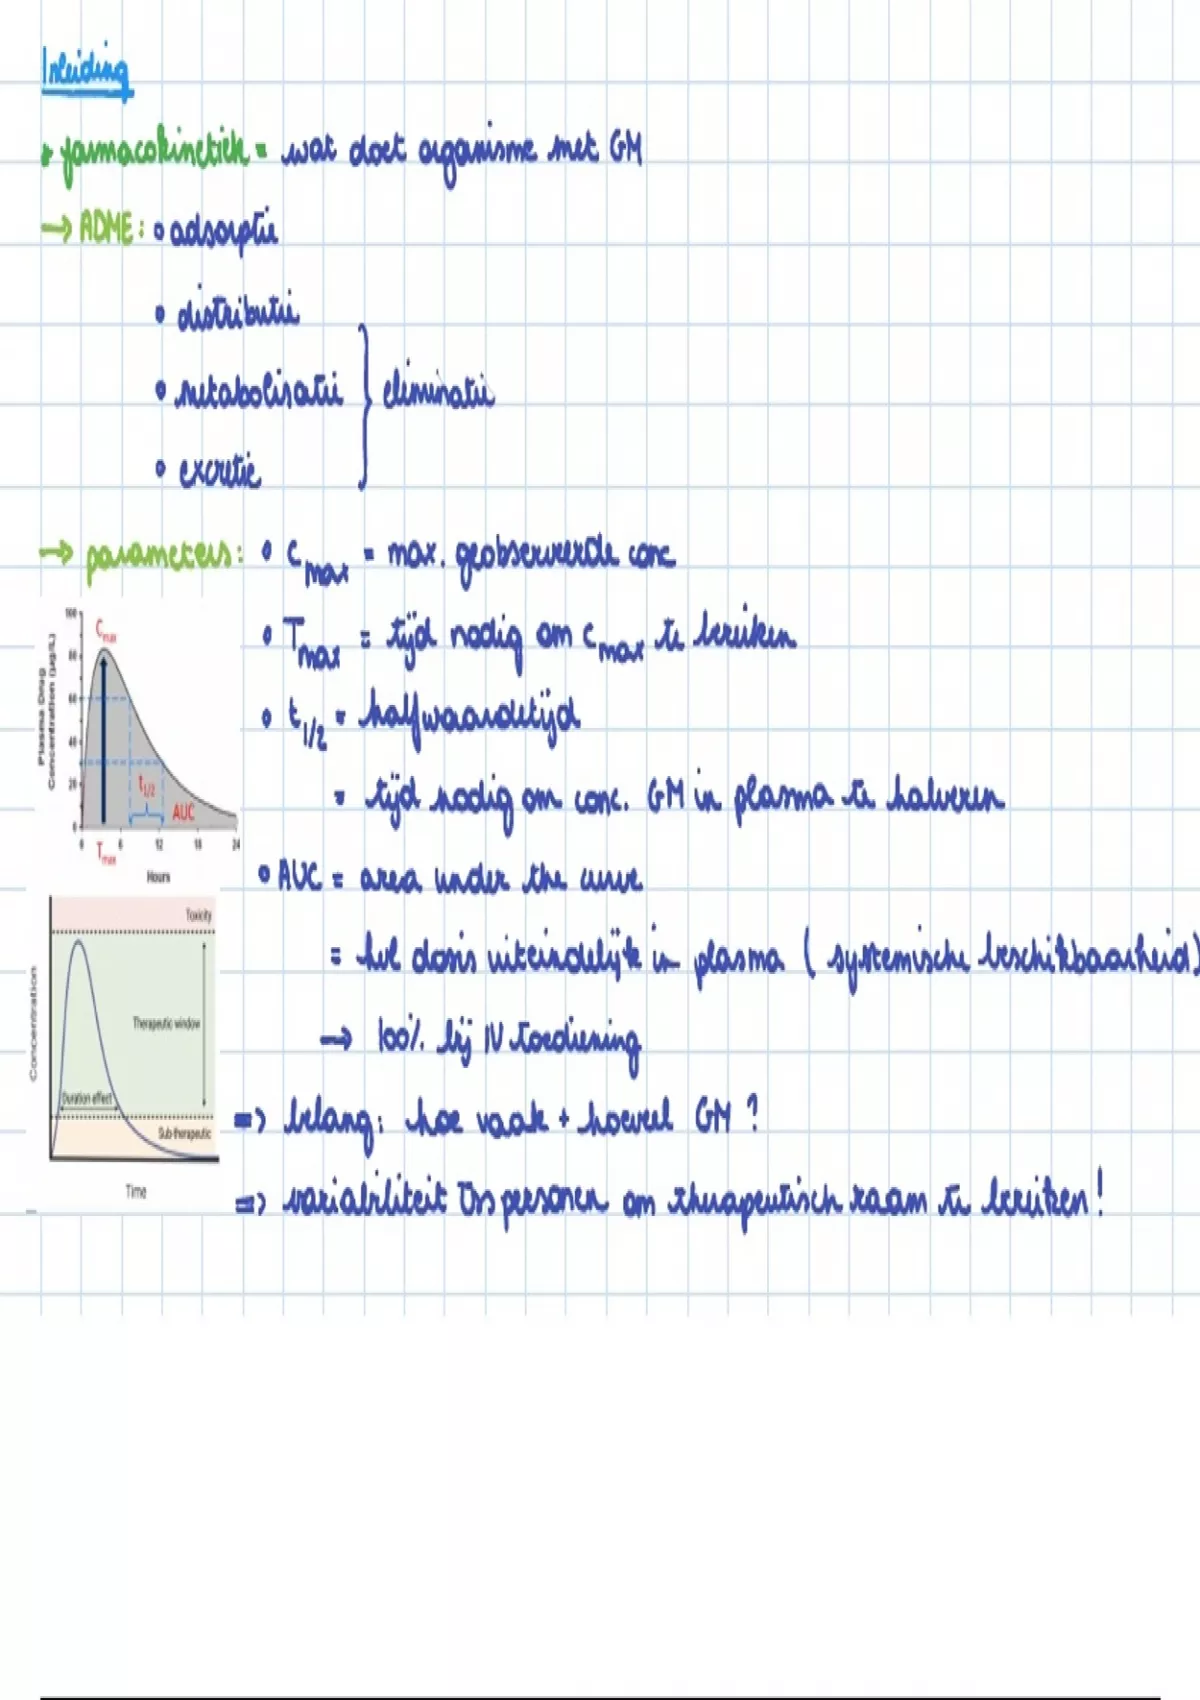 Inleiding
farmacokinetiek = wat doet organisme met GM
→ ADME: adsorptie
distributie
metabolisatie } eliminatie
excretie
→ parameters: Cmax = max. geobserveerde conc
Tmax = tijd nodig om Cmax te bereiken
t1/2 = halfwaardetijd
= tijd nodig om conc. GM in plasma te halveren
AUC = area under the curve
= hvl dosis uiteindelijk in plasma (systemische beschikbaarheid)
→ 100% bij IV toediening
=> belang: hoe vaak + hoeveel GM?
=> variabiliteit tss personen om therapeutisch raam te bereiken!
Plasma Drug
Concentration (µg/L)
100
80
60
40
20
0
Cmax
t1/2
AUC
0 6 12 18 24
Tmax
Hours
Concentration
Toxicity
Therapeutic window
Duration effect
Sub-therapeutic
Time